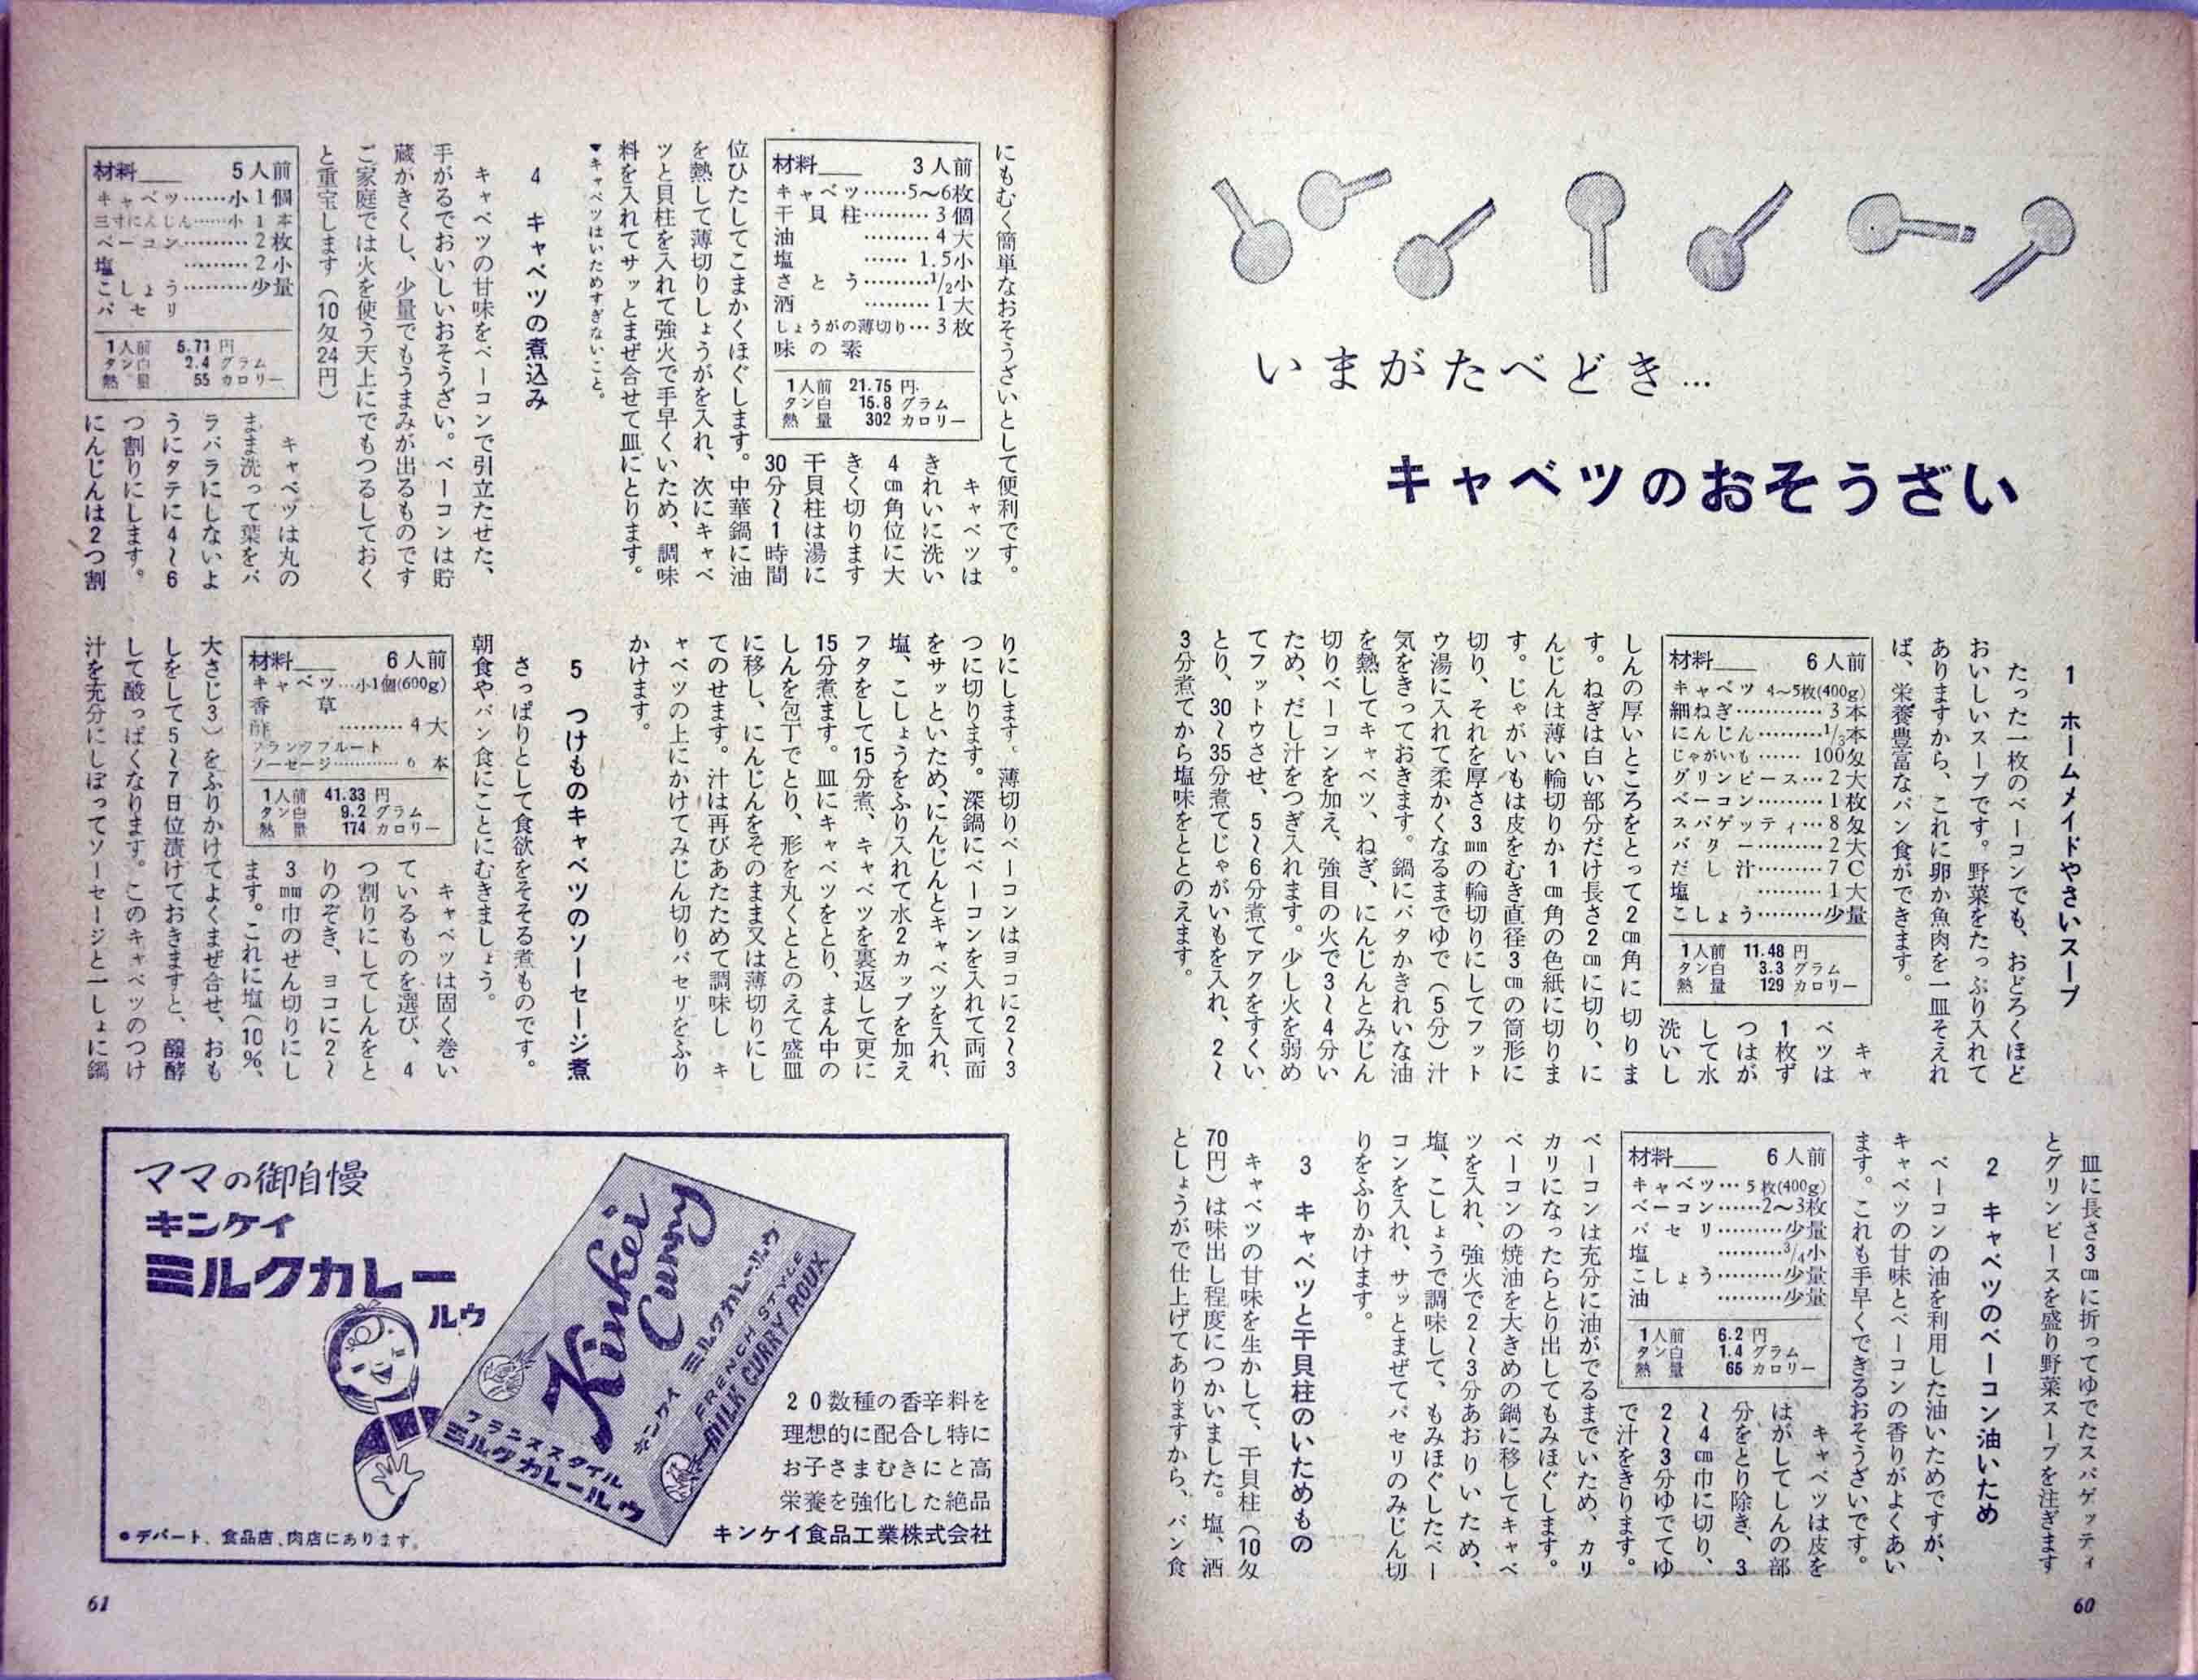 いまがたべどき…
キャベツのおそうざい
1 ホームメイドやさいスープ
たった一枚のベーコンでも、おどろくほど
おいしいスープです。野菜をたっぷり入れて
ありますから、これに卵か魚肉を一皿そえれ
ば、栄養豊富なパン食ができます。
材料 6人前
キャベツ 4〜5枚(400g)
細ねぎ…………3本
にんじん………1/3本
じゃがいも……100匁
グリンピース…2大
ベーコン………1枚
スパゲッティ…8匁
バター………2大
だし汁………7C
塩………1大
こしょう………少量
1人前 11.48円
タン白 3.3グラム
熱量 129カロリー
キャ
ベツは
1枚ず
つはが
して水
洗いし
しんの厚いところをとって2cm角に切りま
す。ねぎは白い部分だけ長さ2cmに切り、に
んじんは薄い輪切りか1cm角の色紙に切りま
す。じゃがいもは皮をむき直径3cmの筒形に
切り、それを厚さ3mmの輪切りにしてフット
ウ湯に入れて柔かくなるまでゆで(5分)汁
気をきっておきます。鍋にバタかきれいな油
を熱してキャベツ、ねぎ、にんじんとみじん
切りベーコンを加え、強目の火で3〜4分い
ため、だし汁をつぎ入れます。少し火を弱め
てフットウさせ、5〜6分煮てアクをすくい
とり、30〜35分煮てじゃがいもを入れ、2〜
3分煮てから塩味をととのえます。
皿に長さ3cmに折ってゆでたスパゲッティ
とグリンピースを盛り野菜スープを注ぎます
2 キャベツのベーコン油いため
ベーコンの油を利用した油いためですが、
キャベツの甘味とベーコンの香りがよくあい
ます。これも手早くできるおそうざいです。
材料 6人前
キャベツ…5枚(400g)
ベーコン……2〜3枚
パセリ………少量
塩………3/4小
こしょう………少量
油………少量
1人前 6.2円
タン白 1.4グラム
熱量 66カロリー
キャベツは皮を
はがしてしんの部
分をとり除き、3
〜4cm巾に切り、
2〜3分ゆでてゆ
で汁をきります。
ベーコンは充分に油がでるまでいため、カリ
カリになったらとり出してもみほぐします。
ベーコンの焼油を大きめの鍋に移してキャベ
ツを入れ、強火で2〜3分あおりいため、
塩、こしょうで調味して、もみほぐしたベー
コンを入れ、サッとまぜてパセリのみじん切
りをふりかけます。
3 キャベツと干貝柱のいためもの
キャベツの甘味を生かして、干貝柱(10匁
70円)は味出し程度につかいました。塩、酒
としょうがで仕上げてありますから、パン食
60
にもむく簡単なおそうざいとして便利です。
材料 3人前
キャベツ……5〜6枚
干貝柱………3個
油………4大
塩……1.5小
さとう………1/2小
酒………1大
しょうがの薄切り…3枚
味の素
1人前 21.75円
タン白 15.8グラム
熱量 302カロリー
キャベツは
きれいに洗い
4cm角位に大
きく切ります
干貝柱は湯に
30分〜1時間
位ひたしてこまかくほぐします。中華鍋に油
を熱して薄切りしょうがを入れ、次にキャベ
ツと貝柱を入れて強火で手早くいため、調味
料を入れてサッとまぜ合せて皿にとります。
▼キャベツはいためすぎないこと。
4 キャベツの煮込み
キャベツの甘味をベーコンで引立たせた、
手がるでおいしいおそうざい。ベーコンは貯
蔵がきくし、少量でもうまみが出るものです
ご家庭では火を使う天上にでもつるしておく
と重宝します(10匁24円)
材料 5人前
キャベツ……小1個
三寸にんじん……小1本
ベーコン………2枚
塩………2小
こしょう………少量
パセリ
1人前 5.71円
タン白 2.4グラム
熱量 55カロリー
キャベツは丸の
まま洗って葉をバ
ラバラにしないよ
うにタテに4〜6
つ割りにします。
にんじんは2つ割
りにします。薄切りベーコンはヨコに2〜3
つに切ります。深鍋にベーコンを入れて両面
をサッといため、にんじんとキャベツを入れ、
塩、こしょうをふり入れて水2カップを加え
フタをして15分煮、キャベツを裏返して更に
15分煮ます。皿にキャベツをとり、まん中の
しんを包丁でとり、形を丸くととのえて盛皿
に移し、にんじんをそのまま又は薄切りにし
てのせます。汁は再びあたためて調味し キ
ャベツの上にかけてみじん切りパセリをふり
かけます。
5 つけものキャベツのソーセージ煮
さっぱりとして食欲をそそる煮ものです。
朝食やパン食にことにむきましょう。
材料 6人前
キャベツ…小1個(600g)
香草
酢………4大
フランクフルート
ソーセージ…………6本
1人前 41.33円
タン白 9.2グラム
熱量 174カロリー
キャベツは固く巻い
ているものを選び、4
つ割りにしてしんをと
りのぞき、ヨコに2〜
3mm巾のせん切りにし
ます。これに塩(10%、
大さじ3)をふりかけてよくまぜ合せ、おも
しをして5〜7日位漬けておきますと、醱酵
して酸っぱくなります。このキャベツのつけ
汁を充分にしぼってソーセージと一しょに鍋
ママの御自慢
キンケイ
ミルクカレー
ルウ
Kinkei
Curry
キンケイ ミルクカレールウ
FRENCH STYLE
MILK CURRY ROUX
フランススタイル
ミルクカレールウ
20数種の香辛料を
理想的に配合し特に
お子さまむきにと高
栄養を強化した絶品
キンケイ食品工業株式会社
●デパート、食品店、肉店にあります。
61